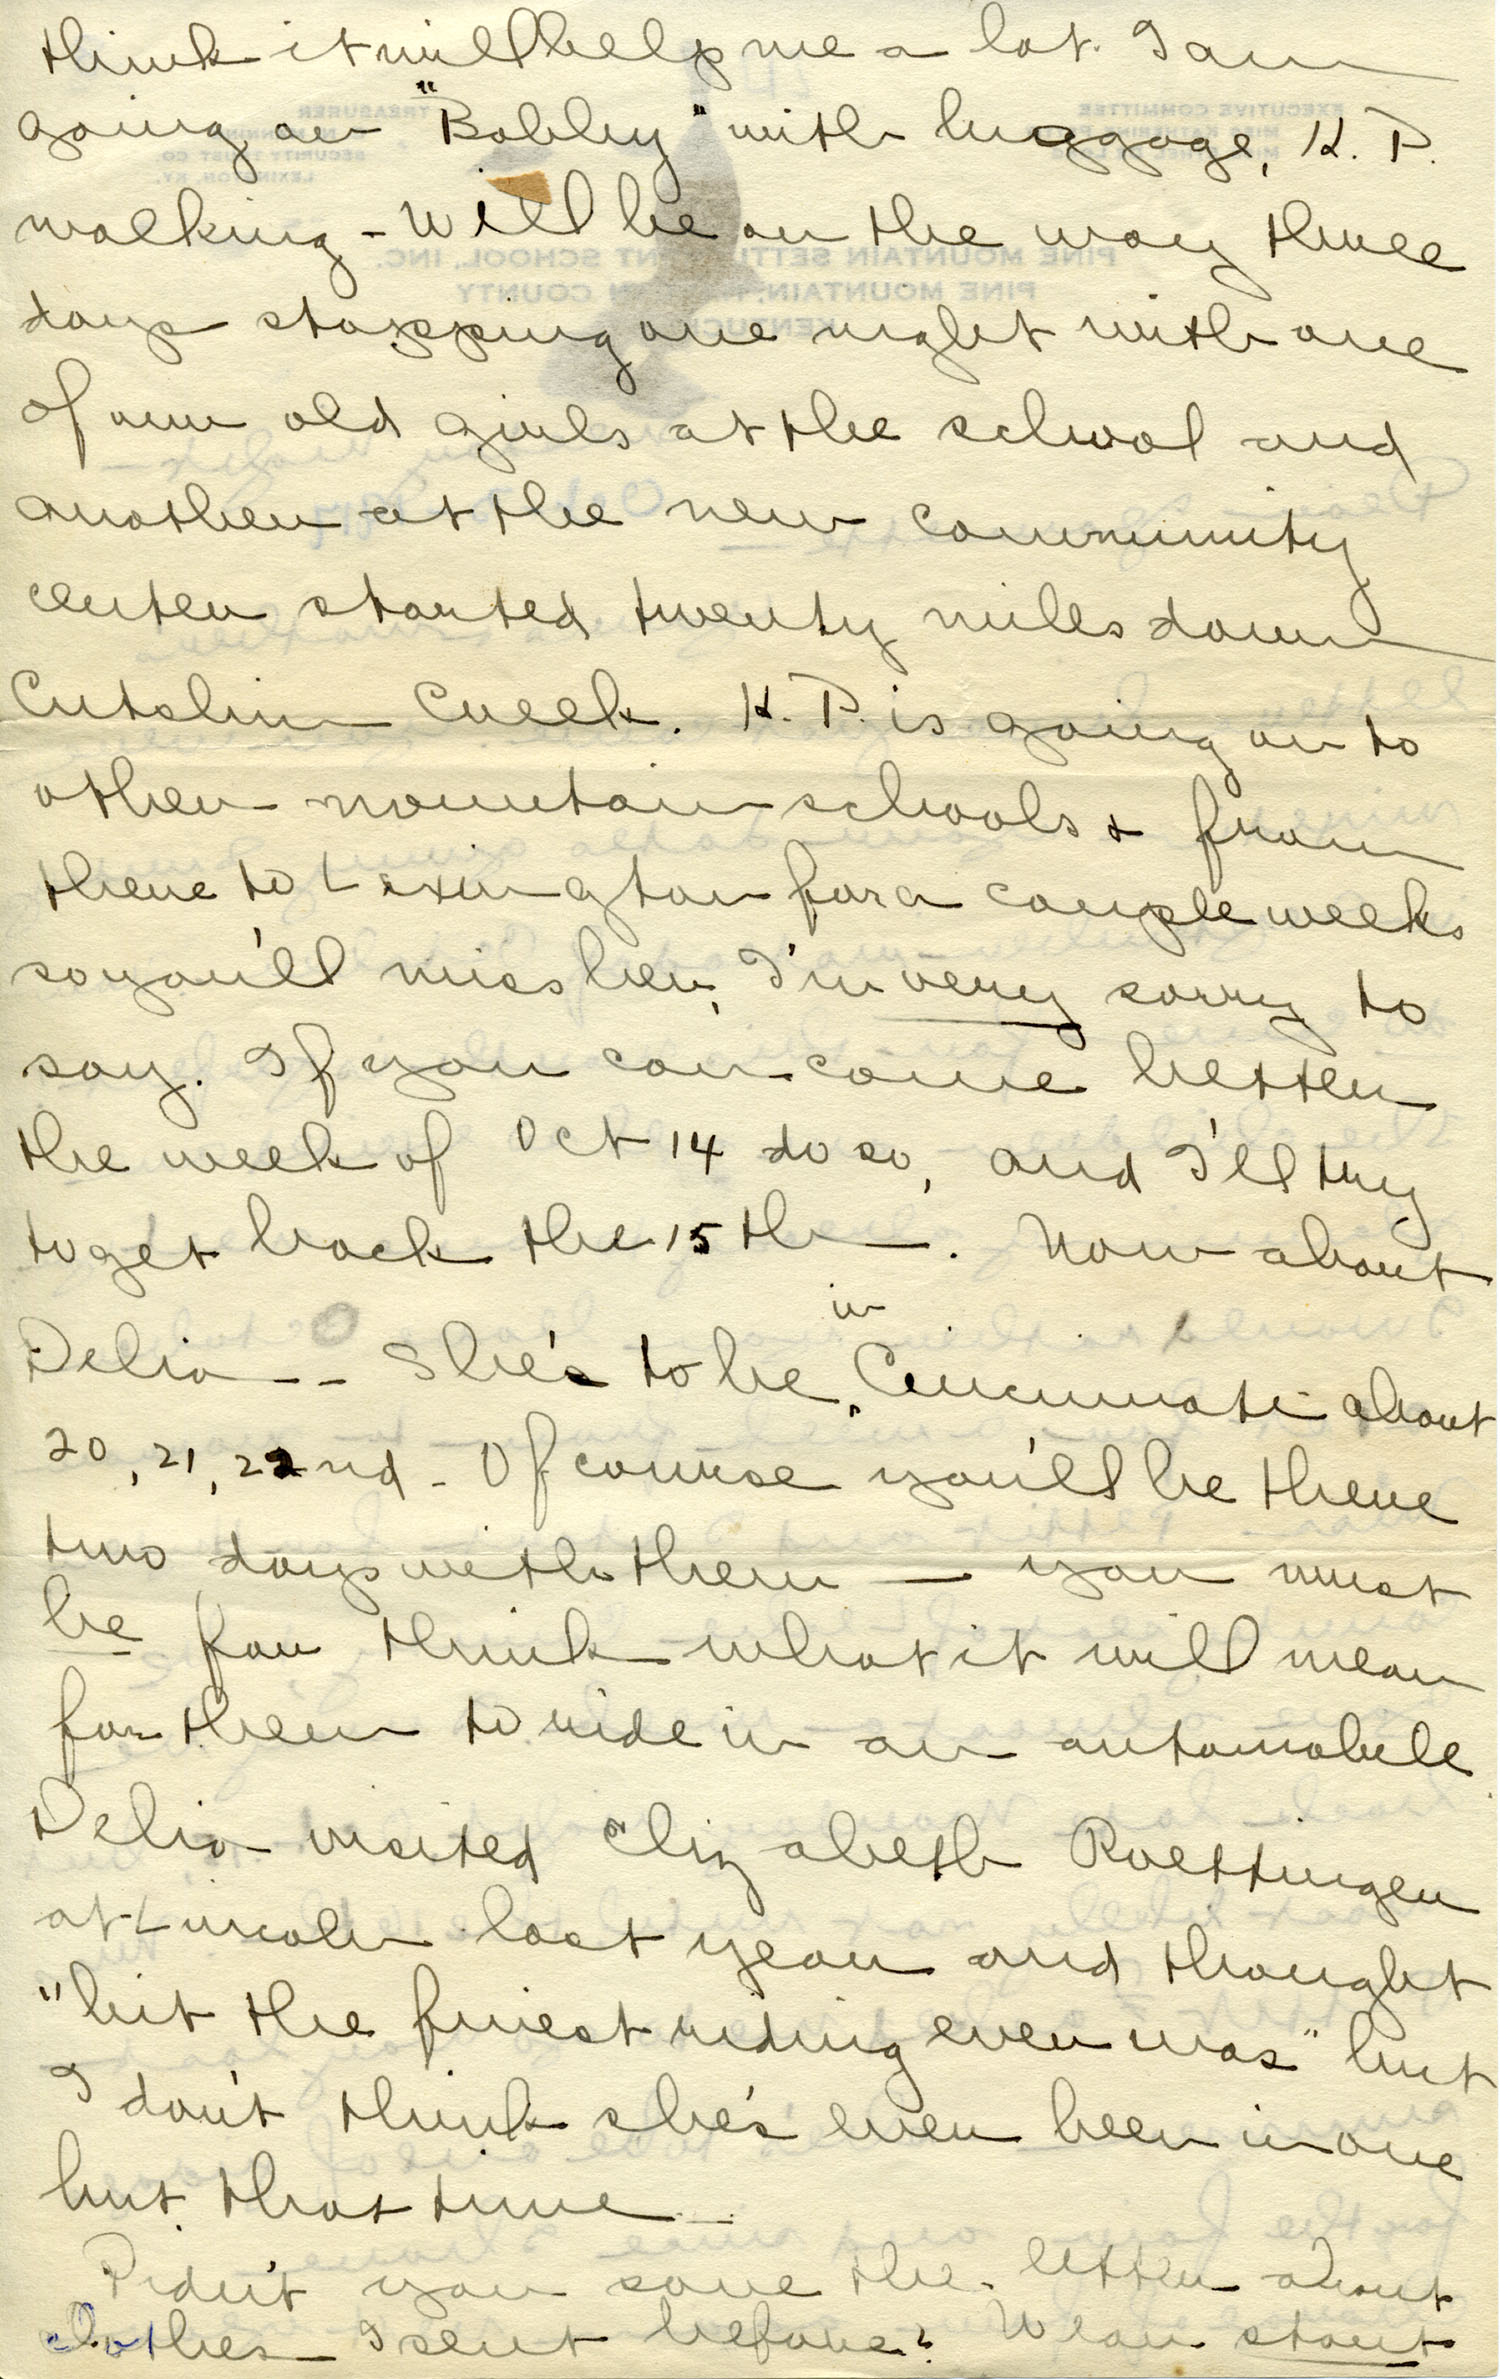 think it will help me a lot. I am
going on "Bobby" with luggage, K. P.
walking - Will be on the way three
days stopping one night with one
of our old girls at the school and
another at the new community
center started twenty miles down
Cutshin Creek. K. P. is going on to
other mountain schools & from
there to Lexington for a couple weeks
so you'll miss her, I'm very sorry to
say. If you can come better
the week of Oct 14 do so, and I'll try
to get back the 15th. Now about
Delia -- She's to be in Cincinnati about
20, 21, 22nd - Of course you'll be there
two days with them — you must
be for think what it will mean
for them to ride in an automobile.
Delia visited Elizabeth Roettinger
at Lincoln last year and thought
"hit the finest riding ever was" but
I don't think she's ever been in one
but that time —
Didn't you save the letter about
clothes I sent before? Wear stout
EXECUTIVE COMMITTEE
TREASURER
SECURITY TRUST CO.
LEXINGTON, KY.
PINE MOUNTAIN SETTLEMENT SCHOOL, INC.
PINE MOUNTAIN, HARLAN COUNTY
KENTUCKY